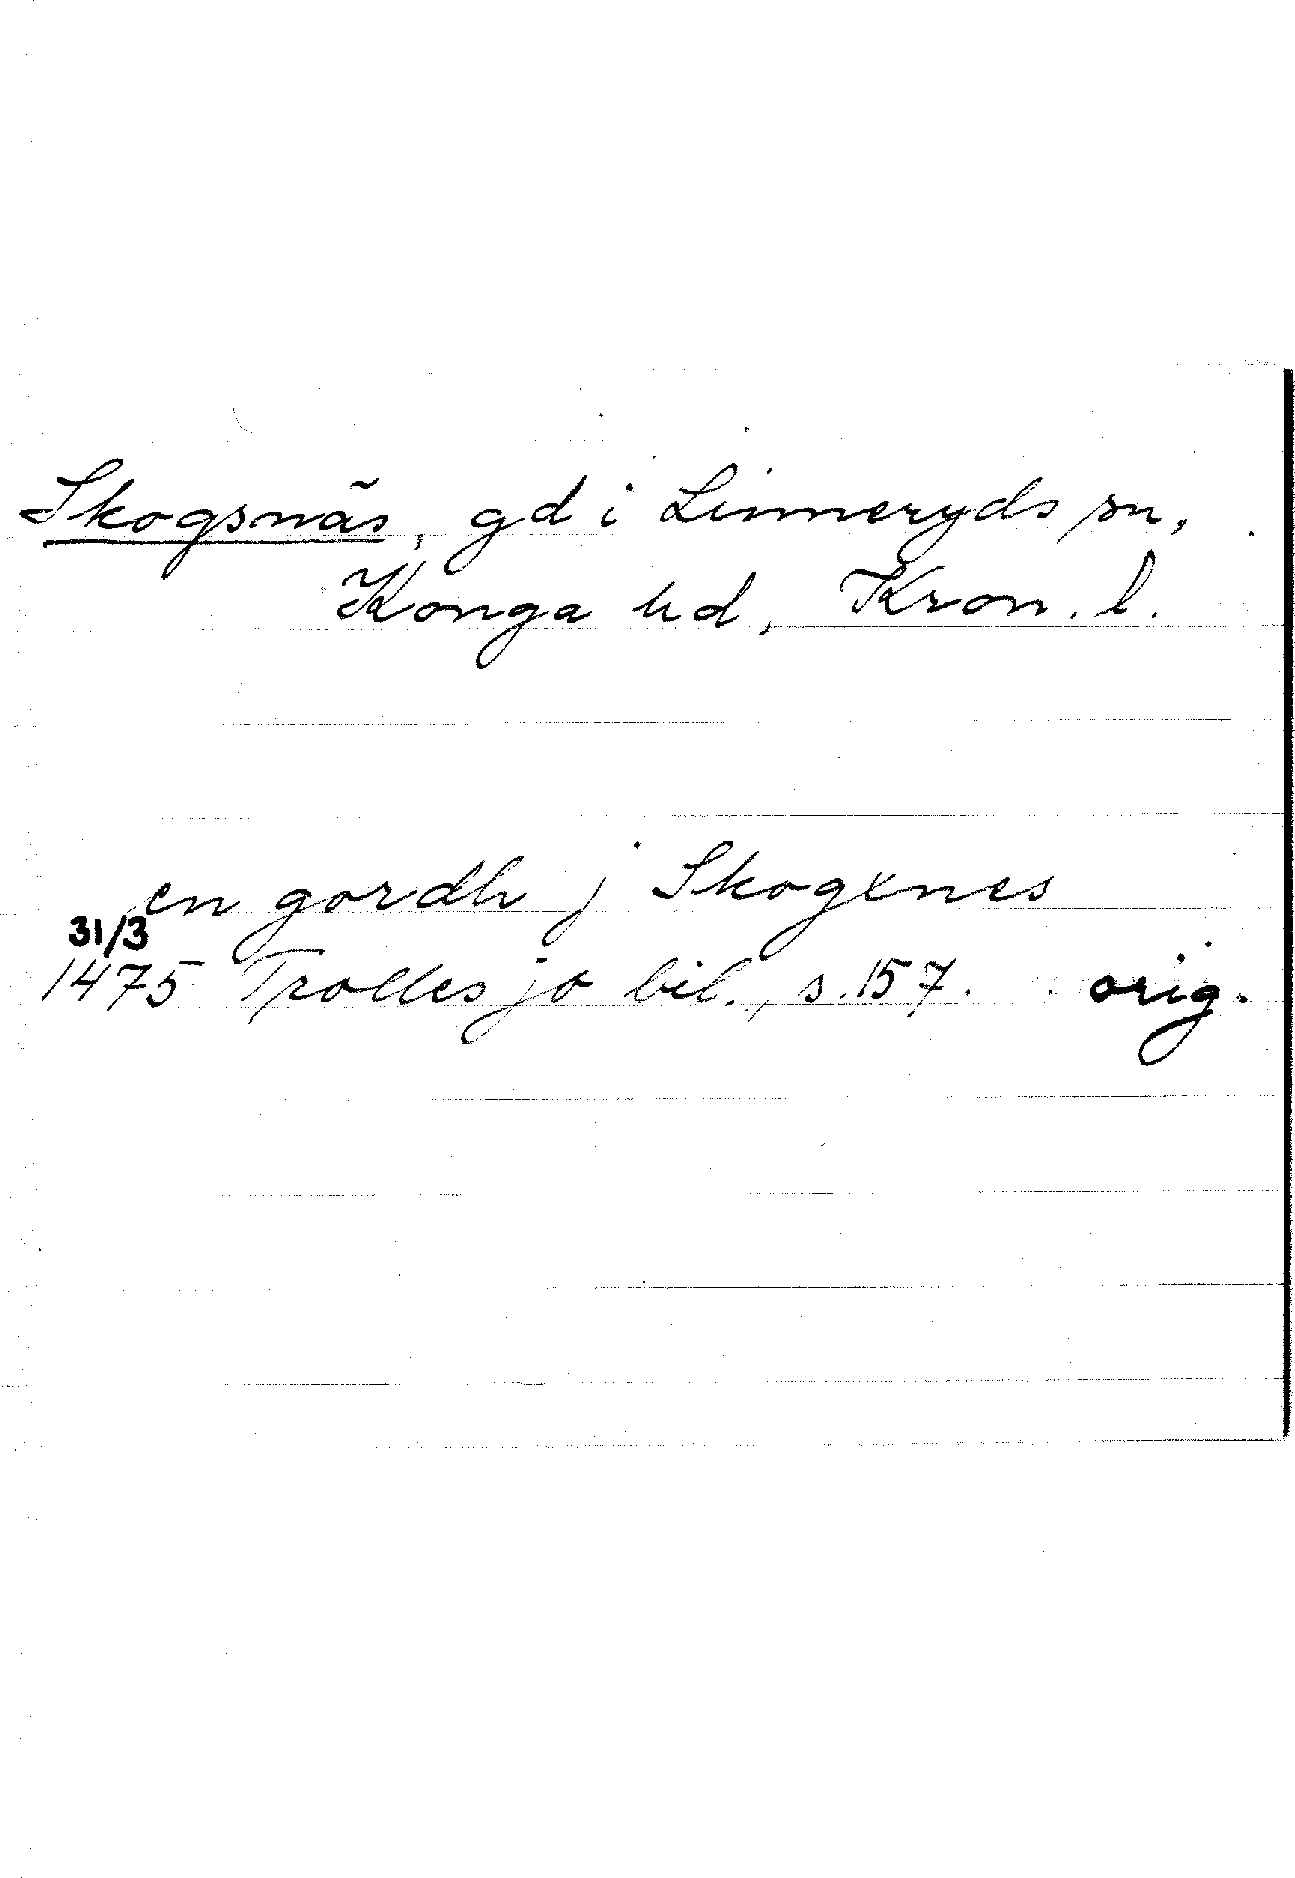 Skogsnäs, gd i Linneryds sn,
Konga hd, Kron. l.
en gordh j Skogxnes
31/3
1475 Trolles jo bil., s. 157. orig.